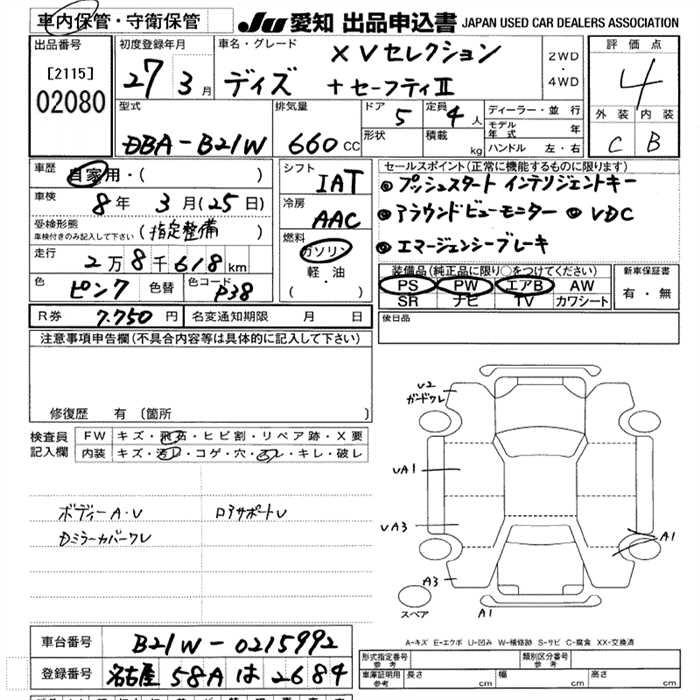 車内保管・守衛保管
JU 愛知 出品申込書 JAPAN USED CAR DEALERS ASSOCIATION
出品番号
[2115]
02080
初度登録年月
27 3月
車名・グレード
デイズ
XVセレクション
+セーフティII
2WD
・
4WD
評価点
4
外装 内装
C B
型式
DBA-B21W
排気量
660 CC
ドア 5
形状
定員 4人
積載 kg
ディーラー・並行
モデル年式 年
ハンドル 左・右
車歴 自家用・( )
車検 8年 3月(25日)
受検形態
車検付きのみ記入して下さい (指定整備 )
走行 2万8千618km
色 ピンク 色替 色コード P38
シフト
IAT
冷房
AAC
燃料
ガソリン
軽油
( ・ )
セールスポイント(正常に機能するものに限ります)
◎プッシュスタート インテリジェントキー
◎アラウンドビューモニター ◎VDC
◎エマージェンシーブレーキ
装備品(純正品に限り○をつけてください)
PS PW エアB AW
SR ナビ TV カワシート
新車保証書
有・無
R券 7.750円 名変通知期限 月 日
後日品
注意事項申告欄(不具合内容等は具体的に記入して下さい)
修復歴 有 (箇所 )
検査員
記入欄
FW キズ・飛石・ヒビ割・リペア跡・X要
内装 キズ・汚レ・コゲ・穴・スレ・キレ・破レ
ボディーA・U ロアサポートU
Dミラーカバーワレ
U2
ガードワレ
UA1
UA3
A3
A1
A1
スペア
A-キズ E-エクボ U-凹み W-補修跡 S-サビ C-腐食 XX-交換済
車台番号 B21W-0215992
登録番号 名古屋 58A は 2684
形式指定番号
参考
類別区分番号
参考
車庫証明用
参考
長さ cm 幅 cm 高さ cm